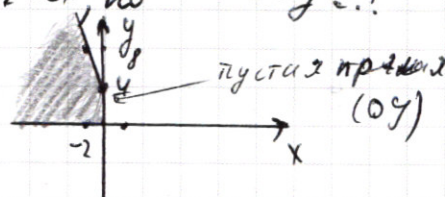 y
8
4
пустая прямая
(OY)
-2
x